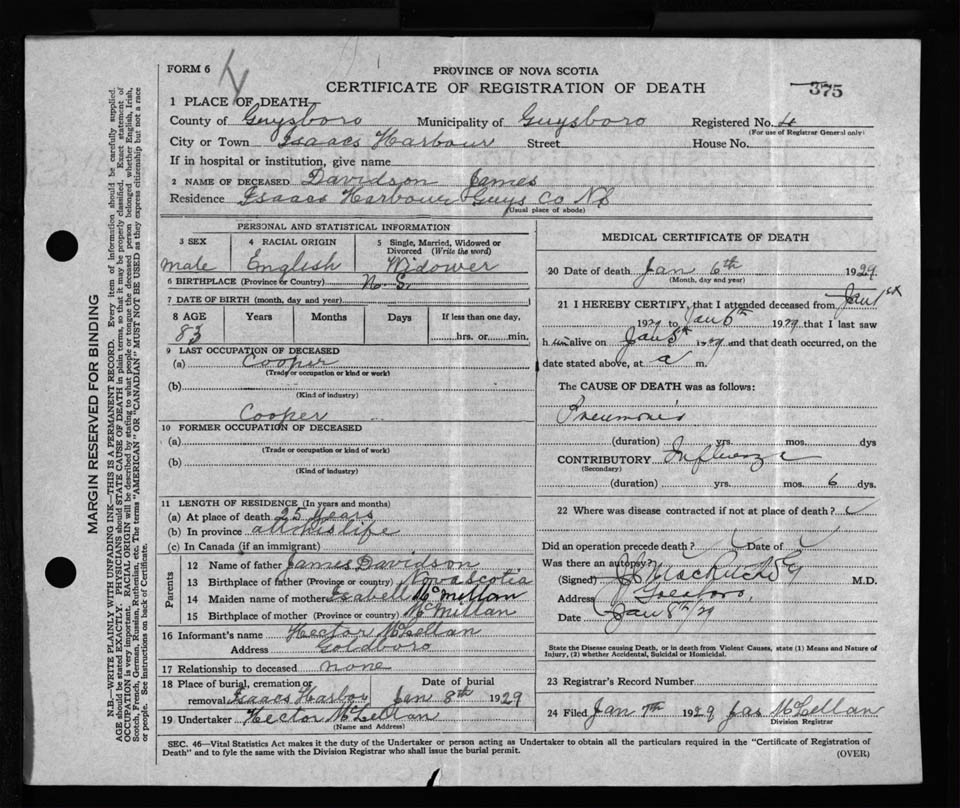 FORM 6
PROVINCE OF NOVA SCOTIA
375
CERTIFICATE OF REGISTRATION OF DEATH
1 PLACE OF DEATH
County of Guysboro Municipality of Guysboro Registered No. 4
(For use of Registrar General only)
City or Town Isaacs Harbour Street House No.
If in hospital or institution, give name
2 NAME OF DECEASED Davidson James
Residence Isaacs Harbour Guys Co NS
(Usual place of abode)
PERSONAL AND STATISTICAL INFORMATION
3 SEX 4 RACIAL ORIGIN 5 Single, Married, Widowed or Divorced (Write the word)
male English Widower
6 BIRTHPLACE (Province or Country) N. S.
7 DATE OF BIRTH (month, day and year)
8 AGE Years Months Days If less than one day,
83 hrs. or min.
9 LAST OCCUPATION OF DECEASED
(a) Cooper
(Trade or occupation or kind or work)
(b)
(Kind of industry)
Cooper
10 FORMER OCCUPATION OF DECEASED
(a)
(Trade or occupation or kind of work)
(b)
(Kind of industry)
11 LENGTH OF RESIDENCE (In years and months)
(a) At place of death 25 Years
(b) In province all his life
(c) In Canada (if an immigrant)
Parents
12 Name of father James Davidson
13 Birthplace of father (Province or country) Nova scotia
14 Maiden name of mother Isabell McMillan
15 Birthplace of mother (Province or country) McMillan
16 Informant's name Hector McLellan
Address Goldboro
17 Relationship to deceased none
18 Place of burial, cremation or Date of burial
removal Isaacs Harbor Jan 8th 1929
19 Undertaker Hector McLellan
(Name and Address)
MEDICAL CERTIFICATE OF DEATH
20 Date of death Jan 6th 1929.
(Month, day and year)
21 I HEREBY CERTIFY, that I attended deceased from Jan 1st
1929 to Jan 6th 1929 that I last saw
h im alive on Jan 5th 1929 and that death occurred, on the
date stated above, at a m.
The CAUSE OF DEATH was as follows:
Pneumonia
(duration) yrs. mos. dys
CONTRIBUTORY Influenza
(Secondary)
(duration) yrs. mos. 6 dys.
22 Where was disease contracted if not at place of death?
Did an operation precede death? Date of
Was there an autopsy?
(Signed) M.D.
Address Goldboro,
Date Jan 8th/29
State the Disease causing Death, or in death from Violent Causes, state (1) Means and Nature of
Injury, (2) whether Accidental, Suicidal or Homicidal.
23 Registrar's Record Number
24 Filed Jan 7th 1929 Jas McLellan
Division Registrar
SEC. 46—Vital Statistics Act makes it the duty of the Undertaker or person acting as Undertaker to obtain all the particulars required in the "Certificate of Registration of
Death" and to fyle the same with the Division Registrar who shall issue the burial permit.
(OVER)
MARGIN RESERVED FOR BINDING
N.B.—WRITE PLAINLY WITH UNFADING INK—THIS IS A PERMANENT RECORD. Every item of information should be carefully supplied.
AGE should be stated EXACTLY. PHYSICIANS should STATE CAUSE OF DEATH in plain terms, so that it may be properly classified. Exact statement of
OCCUPATION is very important. RACIAL ORIGIN will be described by stating to what people or tongue the deceased person belonged whether English, Irish,
Scotch, French, German, Russian, Ruthenian, etc. The terms "AMERICAN" OR "CANADIAN" MUST NOT BE USED as they express citizenship but not a race
or people. See instructions on back of Certificate.